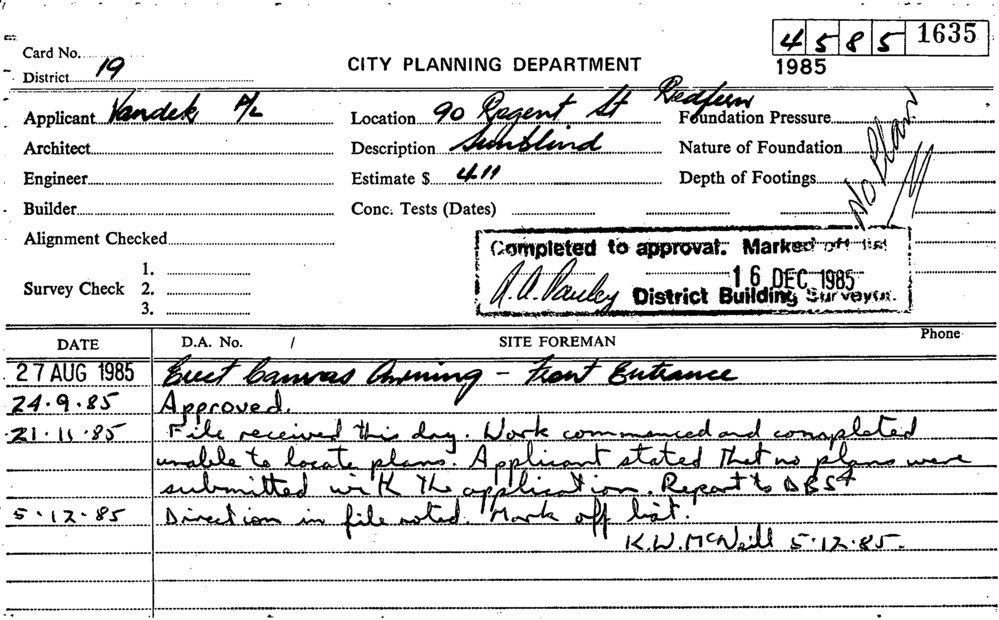 4 5 8 5 1635
1985
Card No.
District 19
CITY PLANNING DEPARTMENT
Applicant Vandek P/L
Location 90 Regent St Redfern
Foundation Pressure
Architect
Description Sunblind
Nature of Foundation
No Plan
Engineer
Estimate $ 411
Depth of Footings
Builder
Conc. Tests (Dates)
Alignment Checked
Completed to approval. Marked off list
16 DEC 1985
District Building Surveyor.
Survey Check 1.
2.
3.
DATE D.A. No. / SITE FOREMAN Phone
27 AUG 1985 Erect Canvas Awning - Front Entrance
24.9.85 Approved.
21.11.85 File received this day. Work commenced and completed
unable to locate plans. Applicant stated that no plans were
submitted with the application. Report to DBS4
5.12.85 Direction in file noted. Mark off list.
K.W. McNeill 5.12.85.